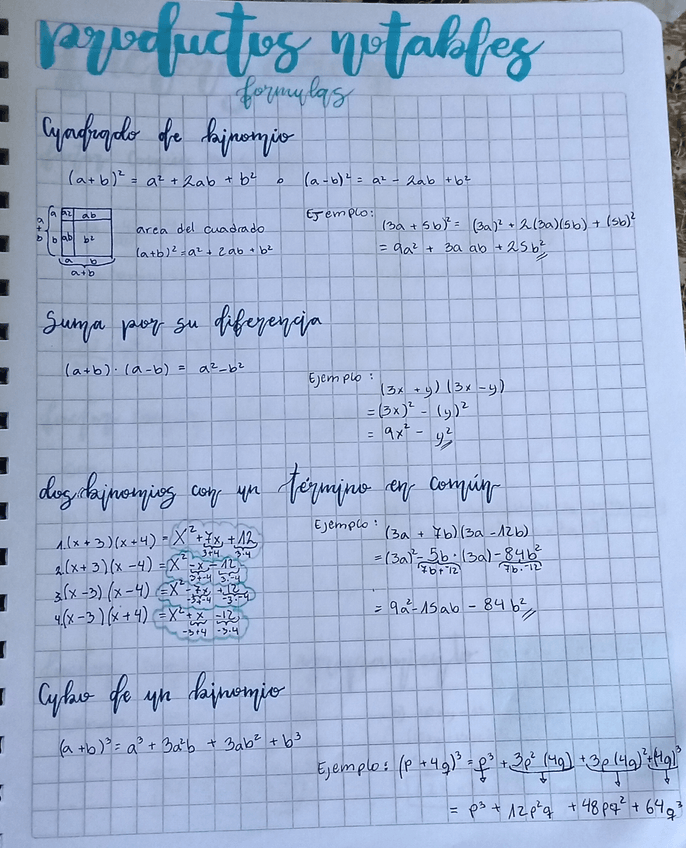 productos notables
formulas
Cuadrado de binomio
(a+b)² = a² + 2ab + b² o (a-b)² = a² - 2ab + b²
a a² ab
+
b b ab b²
a b
a+b
area del cuadrado
(a+b)² = a² + 2ab + b²
Ejemplo:
(3a + 5b)² = (3a)² + 2(3a)(5b) + (5b)²
= 9a² + 30 ab + 25b²
Suma por su diferencia
(a+b)·(a-b) = a²-b²
Ejemplo:
(3x + y) (3x - y)
= (3x)² - (y)²
= 9x² - y²
dos binomios con un término en común
1.(x+3)(x+4) = x² + 7x + 12
3+4 3·4
2.(x+3)(x-4) = x² - x - 12
3+-4 3·-4
3.(x-3)(x-4) = x² - 7x + 12
-3+-4 -3·-4
4.(x-3)(x+4) = x² + x - 12
-3+4 -3·4
Ejemplo:
(3a + 7b)(3a - 12b)
= (3a)² - 5b·(3a) - 84b²
7b+-12 7b·-12
= 9a² - 15ab - 84b²
Cubo de un binomio
(a+b)³ = a³ + 3a²b + 3ab² + b³
Ejemplo: (p + 4q)³ = p³ + 3p² (4q) + 3p (4q)² + (4q)³
= p³ + 12p²q + 48pq² + 64q³